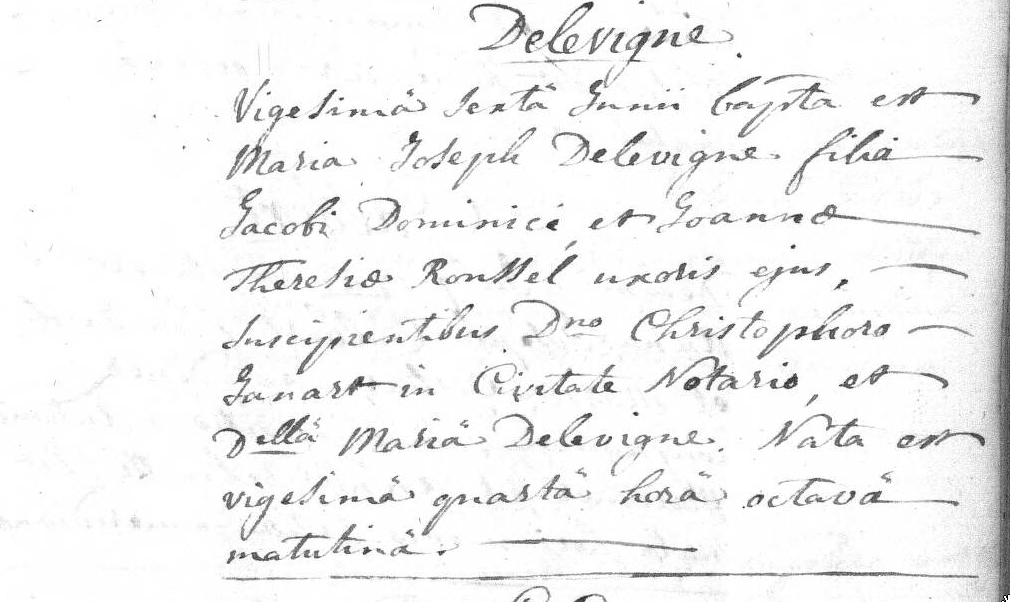 Delevigne.
Vigesimä sextä Junii bapta est
Maria Joseph Delevigne filia
Jacobi Dominici, et Joannæ
Theresiæ Roussel uxoris ejus,
suscipientibus Dno Christophoro
Janart in Civitate Notario, et
Dellä Mariä Delevigne. Nata est
vigesimä quartä horä octavä
matutinä.